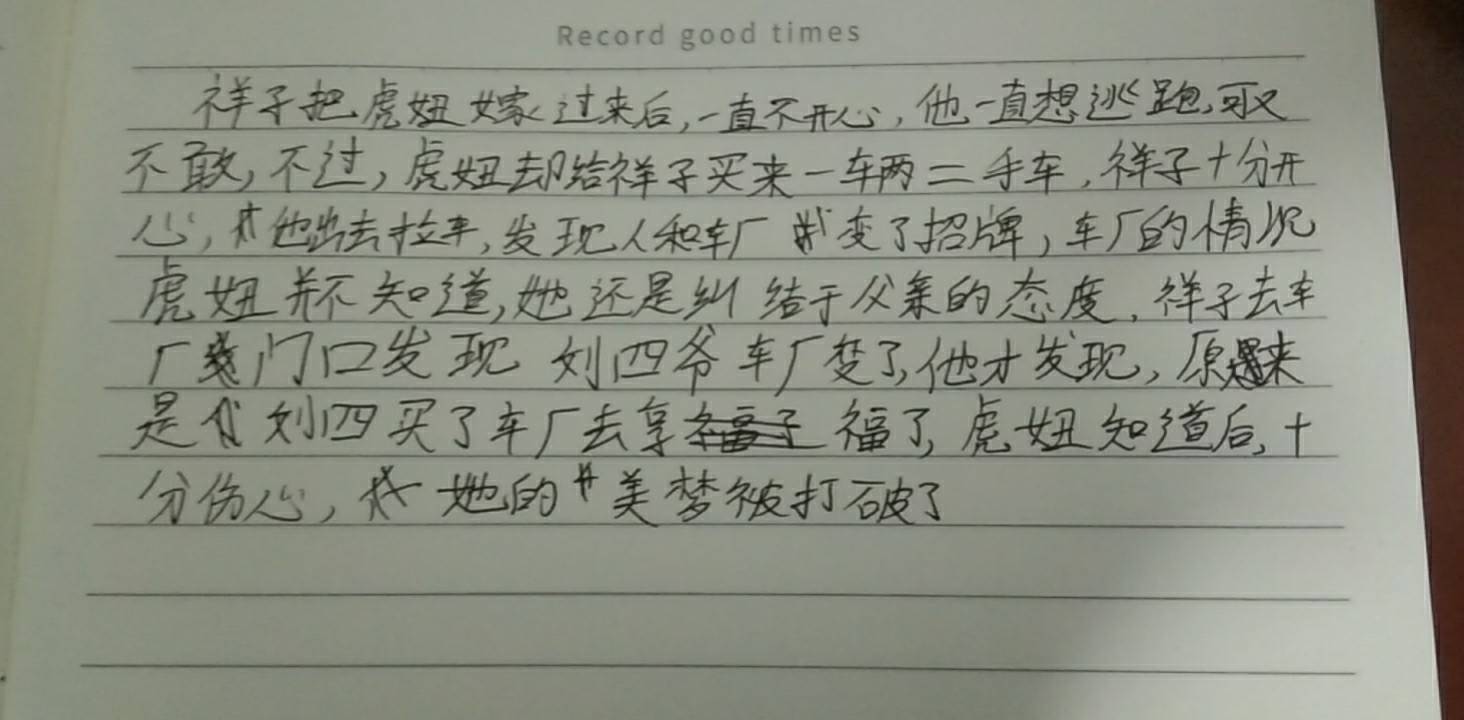 Record good times
祥子把虎妞嫁过来后,一直不开心,他一直想逃跑,可又
不敢,不过,虎妞却给祥子买来一车两二手车,祥子十分开
心,他出去拉车,发现人和车厂变了招牌,车厂的情况
虎妞并不知道,她还是纠结于父亲的态度,祥子去车
厂门口发现刘四爷车厂变了,他才发现,原来
是刘四买了车厂去享福了,虎妞知道后,十
分伤心,她的美梦被打破了